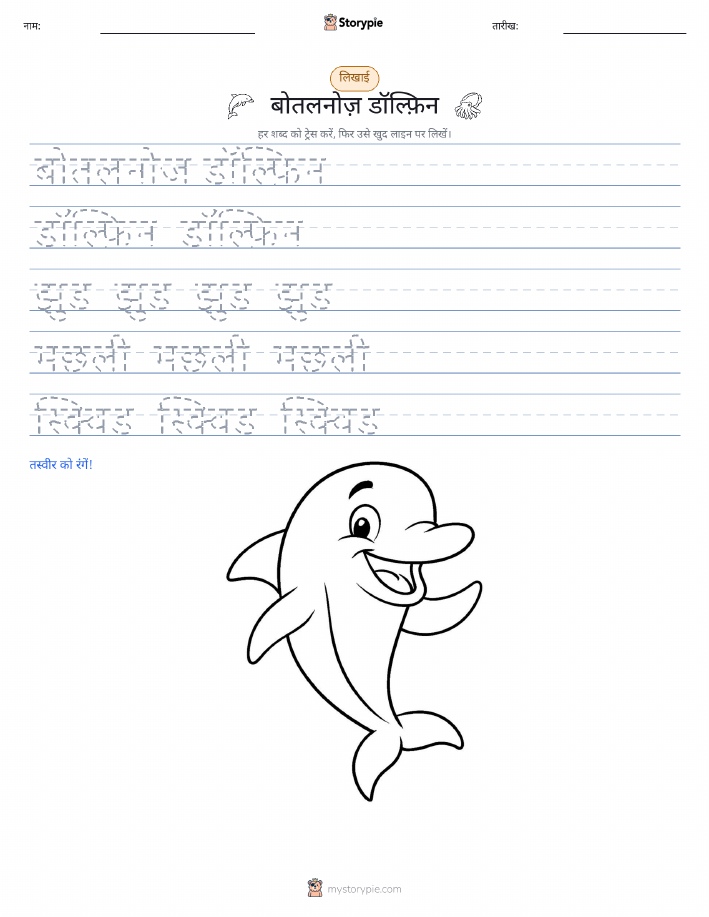 नाम:
Storypie
तारीख:
लिखाई
बोतलनोज़ डॉल्फ़िन
हर शब्द को ट्रेस करें, फिर उसे खुद लाइन पर लिखें।
बोतलनोज डॉल्फिन
डॉल्फिन डॉल्फिन
झुड झुड झुड झुड
मछली मछली मछली
स्क्विड स्क्विड स्क्विड
तस्वीर को रंगें!
mystorypie.com